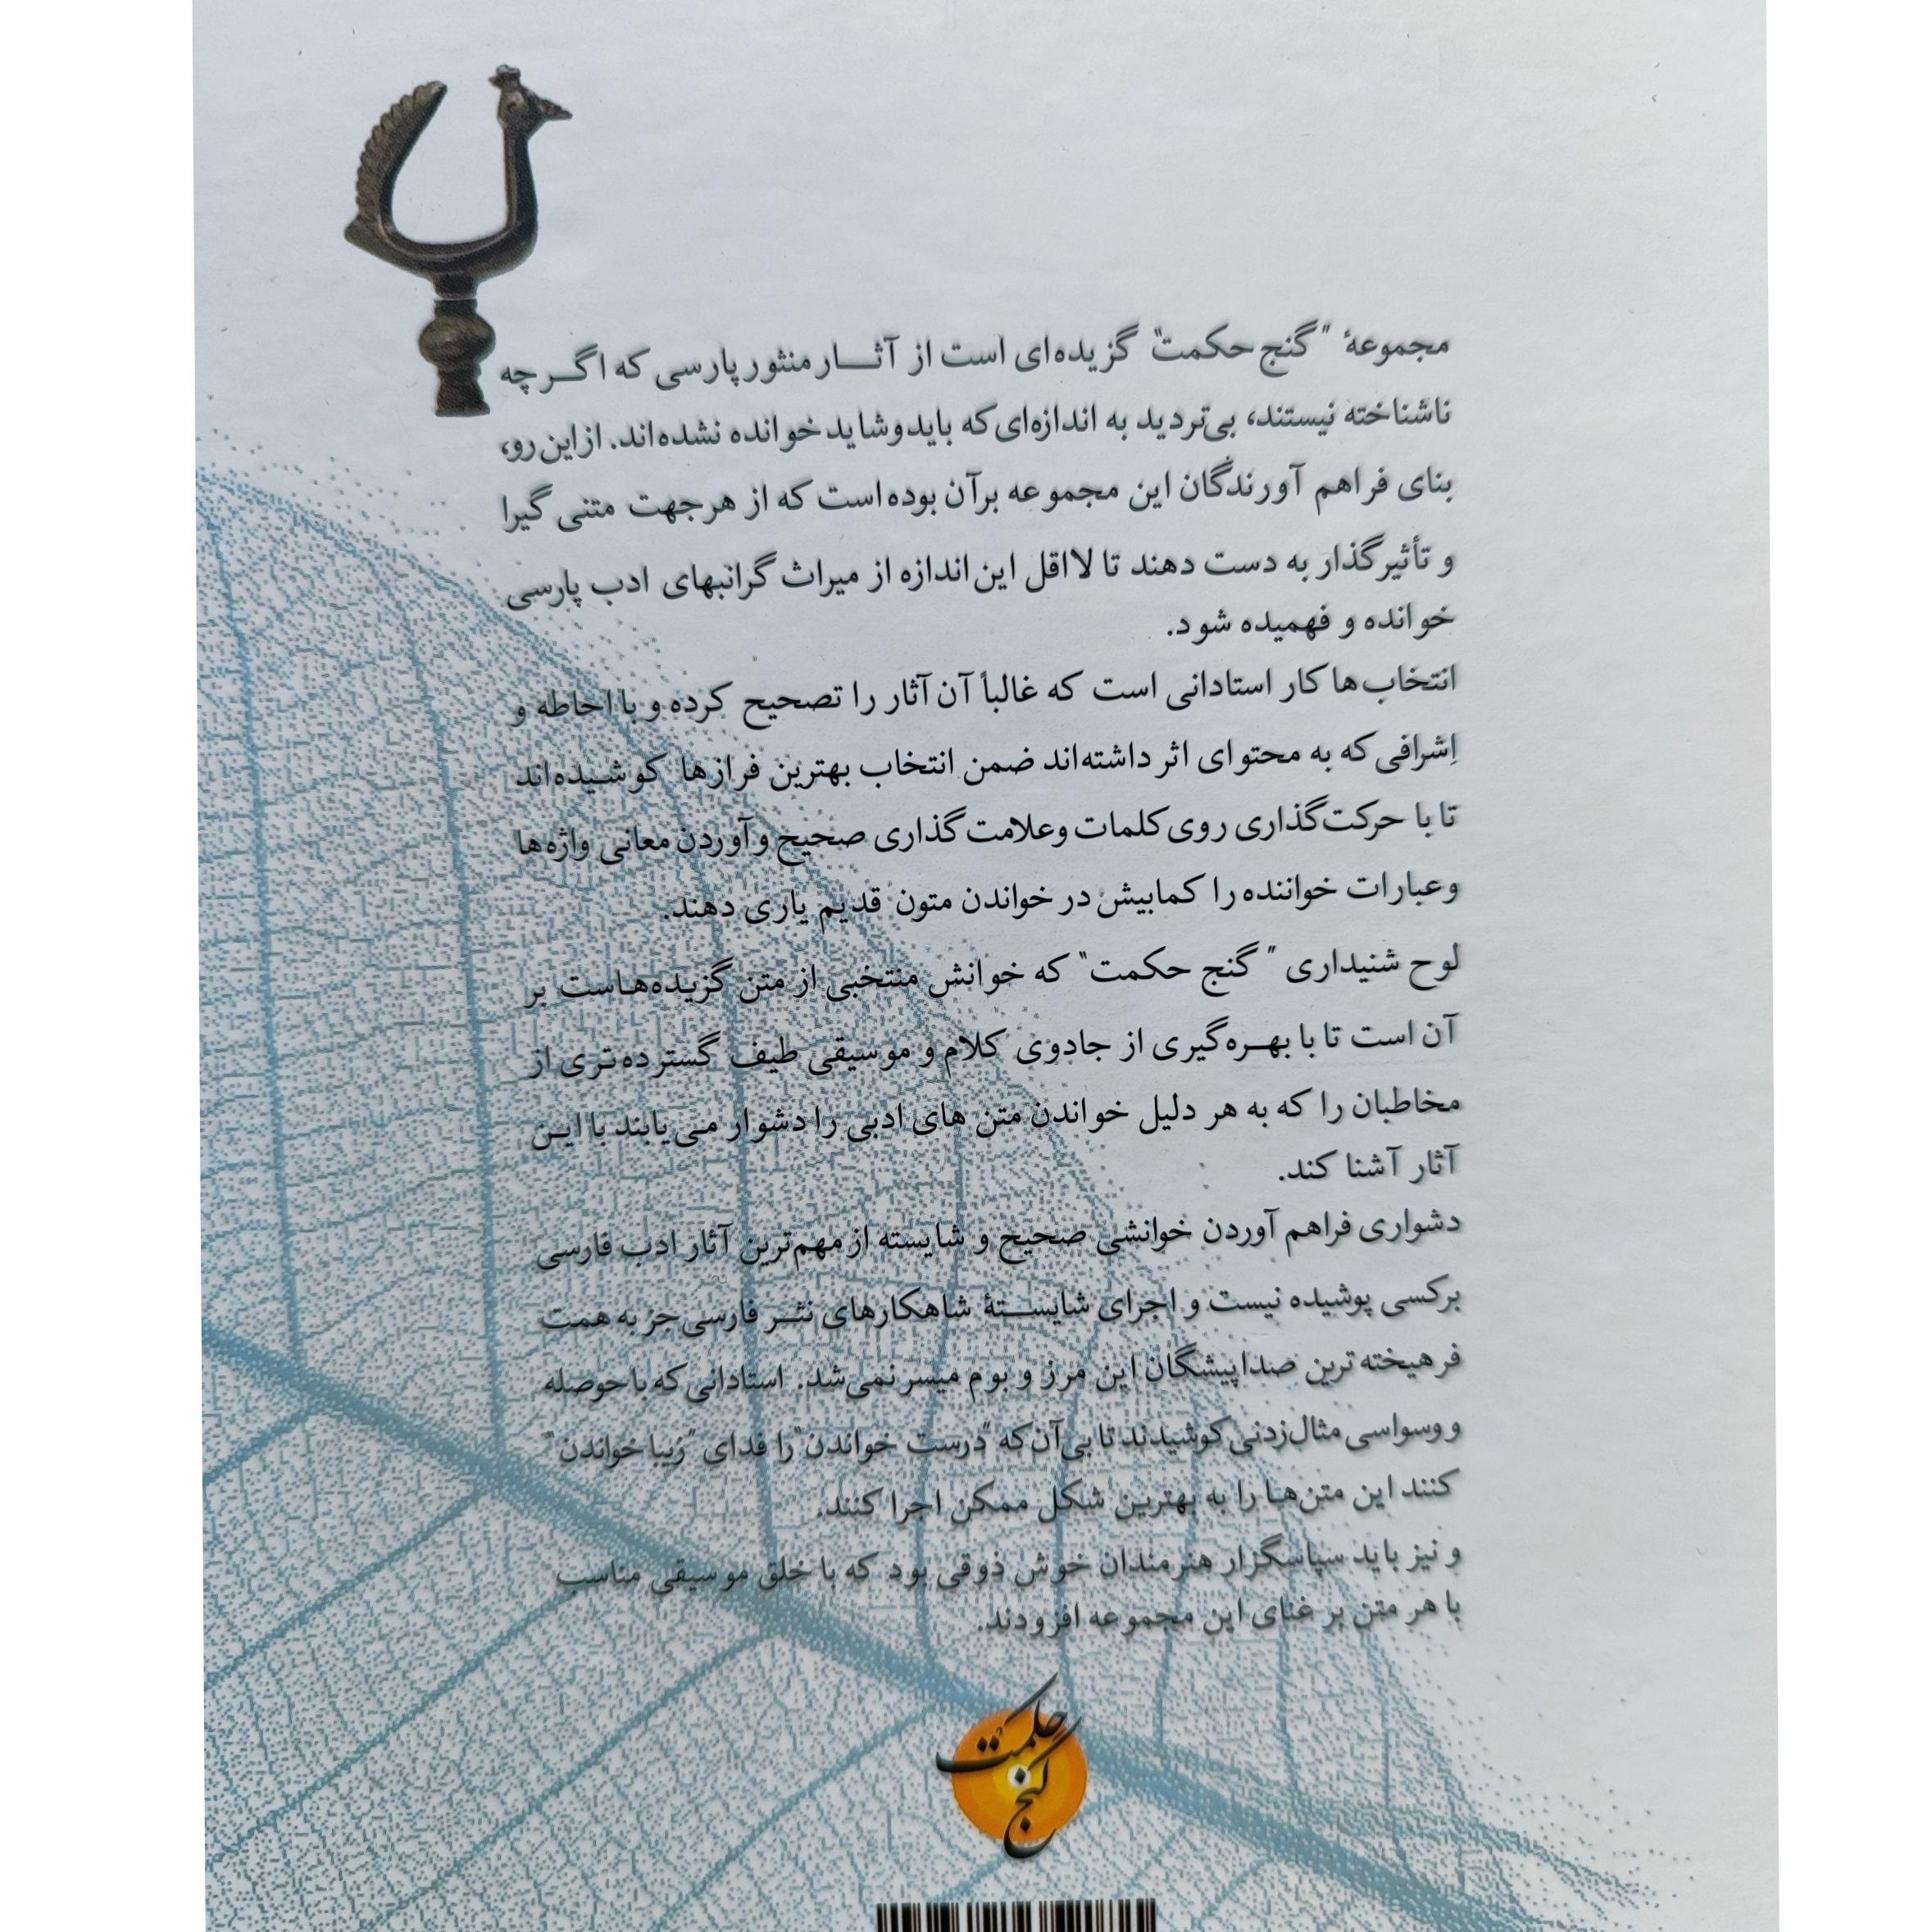 مجموعهٔ "گنج حکمت" گزیده‌ای است از آثـــار منثور پارسی که اگـــرچه
ناشناخته نیستند، بی‌تردید به اندازه‌ای که باید و شاید خوانده نشده‌اند. از این رو،
بنای فراهم آورندگان این مجموعه بر آن بوده است که از هر جهت متنی گیرا
و تأثیرگذار به دست دهند تا لااقل این اندازه از میراث گرانبهای ادب پارسی
خوانده و فهمیده شود.
انتخاب‌ها کار استادانی است که غالباً آن آثار را تصحیح کرده و با احاطه و
اِشرافی که به محتوای اثر داشته‌اند ضمن انتخاب بهترین فرازها کوشیده‌اند
تا با حرکت‌گذاری روی کلمات و علامت‌گذاری صحیح و آوردن معانی واژه‌ها
و عبارات خواننده را کمابیش در خواندن متون قدیم یاری دهند.
لوح شنیداری "گنج حکمت" که خوانش منتخبی از متن گزیده‌هـاست بر
آن است تا با بهــره‌گیری از جادوی کلام و موسیقی طیف گسترده‌تری از
مخاطبان را که به هر دلیل خواندن متن های ادبی را دشوار می‌یابند با ایـن
آثار آشنا کند.
دشواری فراهم آوردن خوانشی صحیح و شایسته از مهم‌ترین آثار ادب فارسی
برکسی پوشیده نیست و اجرای شایســتهٔ شاهکارهای نثــر فارسی جز به همت
فرهیخته ترین صداپیشگان این مرز و بوم میسر نمی‌شد. استادانی که با حوصله
و وسواسی مثال‌زدنی کوشیدند تا بی‌آن‌که "درست خواندن" را فدای "زیبا خواندن"
کنند این متن‌هـا را به بهتریـن شکل ممکن اجرا کنند.
و نیز باید سپاسگزار هنرمندان خوش ذوقی بود که با خلق موسیقی مناسب
با هر متن بر غنای این مجموعه افزودند.
گنج حکمت